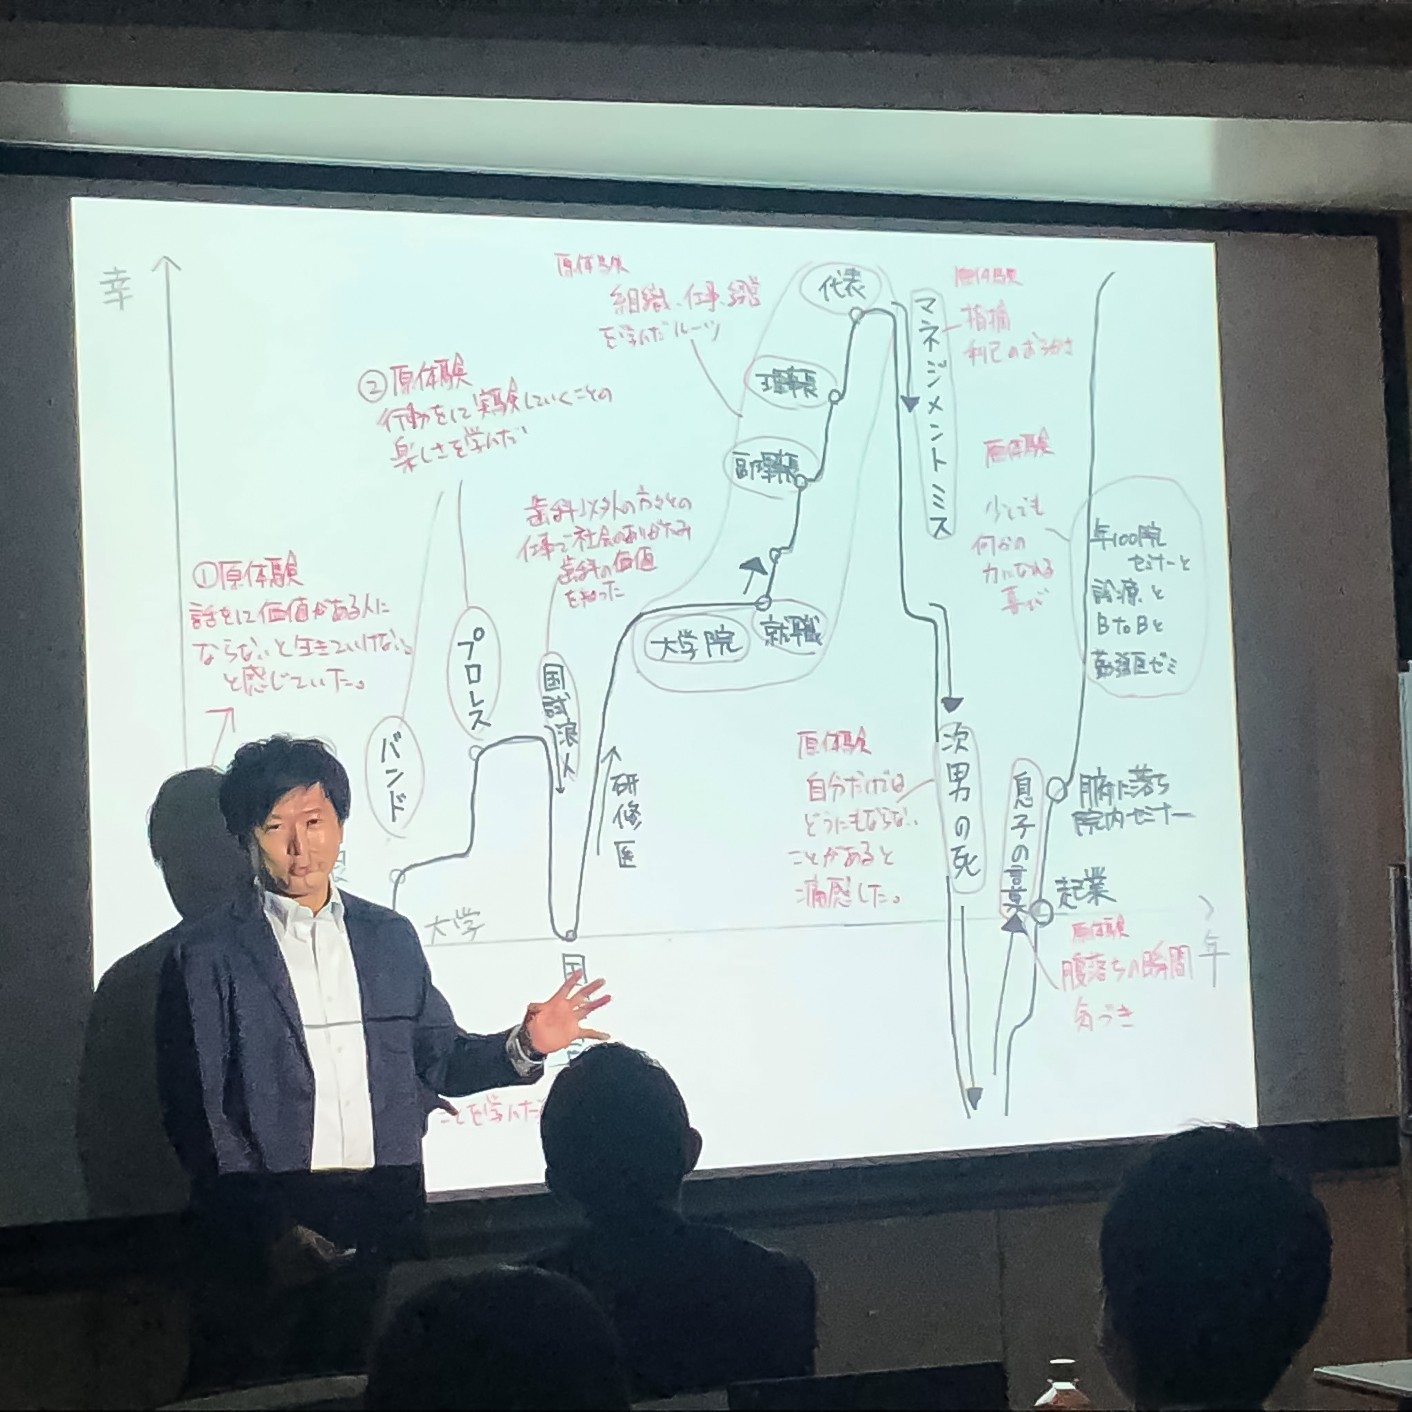 幸
原体験
組織、仕事、経営
を学んだルーツ
代表
マネジメントミス
原体験
指摘
利己のおろかさ
理事長
副理事長
②原体験
行動をして実験していくことの
楽しさを学んだ
原体験
少しでも
何かの
力になれる
喜び
歯科以外の方々との
仕事で社会のありがたみ
歯科の価値
を知った
年100院
セミナーと
診療と
BtoBと
勤務医ゼミ
①原体験
話をして価値がある人に
ならないと生きていけない
と感じていた。
プロレス
バンド
国試浪人
大学院
就職
研修医
原体験
自分だけでは
どうにもならない
ことがあると
痛感した。
次男の死
息子の言葉
腑に落ち
院内セミナー
起業
大学
年
原体験
腹落ちの瞬間
気づき
国
ことを学んだ